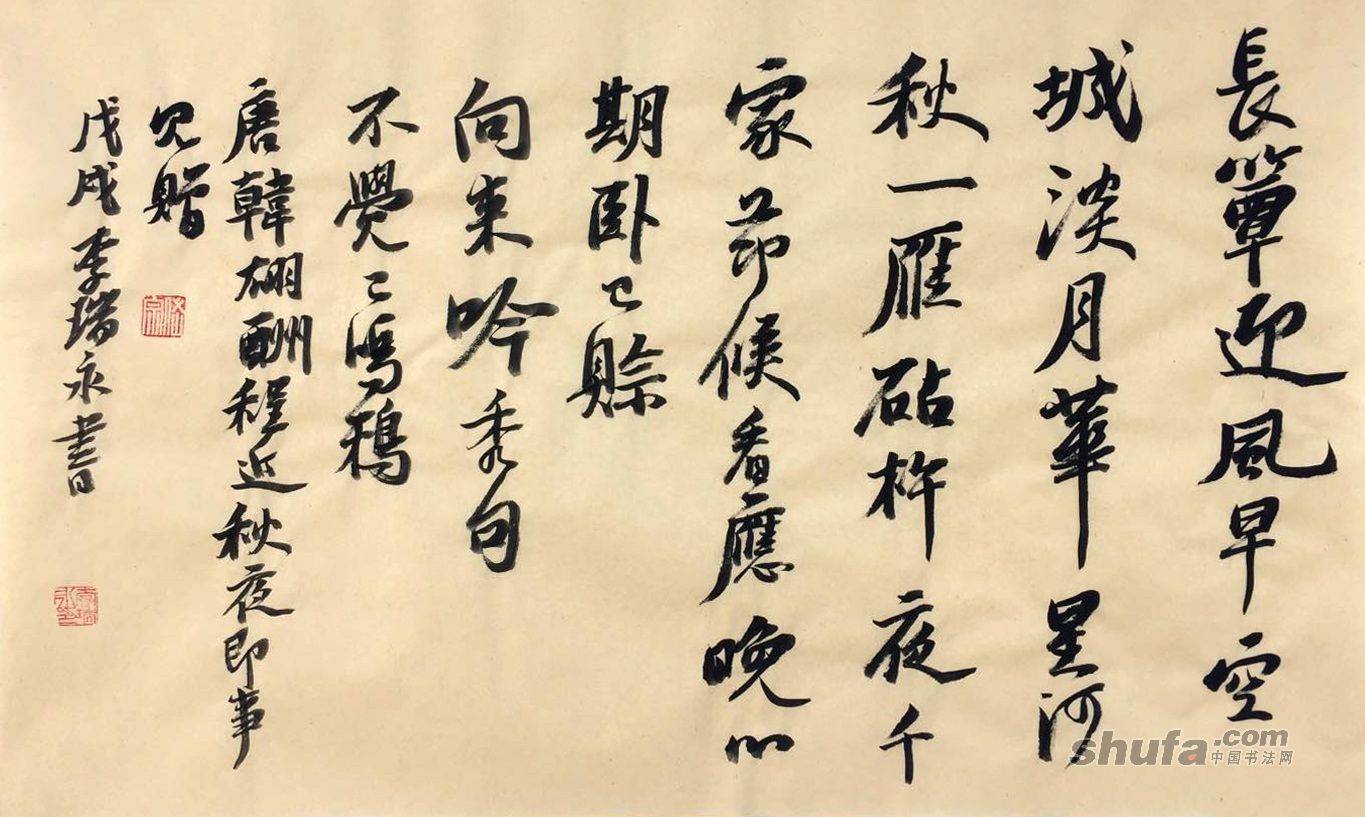 長簟迎風早空
城淡月華星河
秋一雁砧杵夜千
家節候看應晚心
期卧已賒
向来吟秀句
不覺〻鳴鴉
唐韓翃酬程近秋夜即事
見贈
戊戌李瑞永書
shufa.com
中国书法网